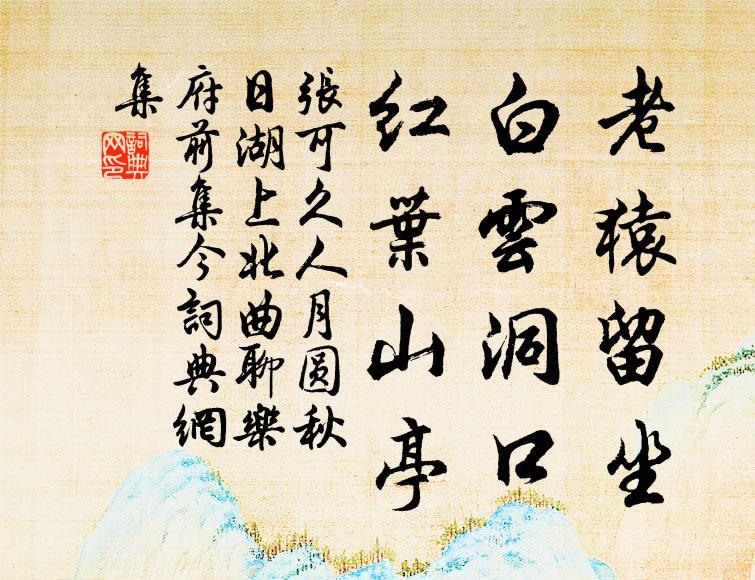 老猿留坐
白雲洞口
紅葉山亭
張可久人月圓秋
日湖上北曲聊樂
府前集今詞典網
集
詞典
網印